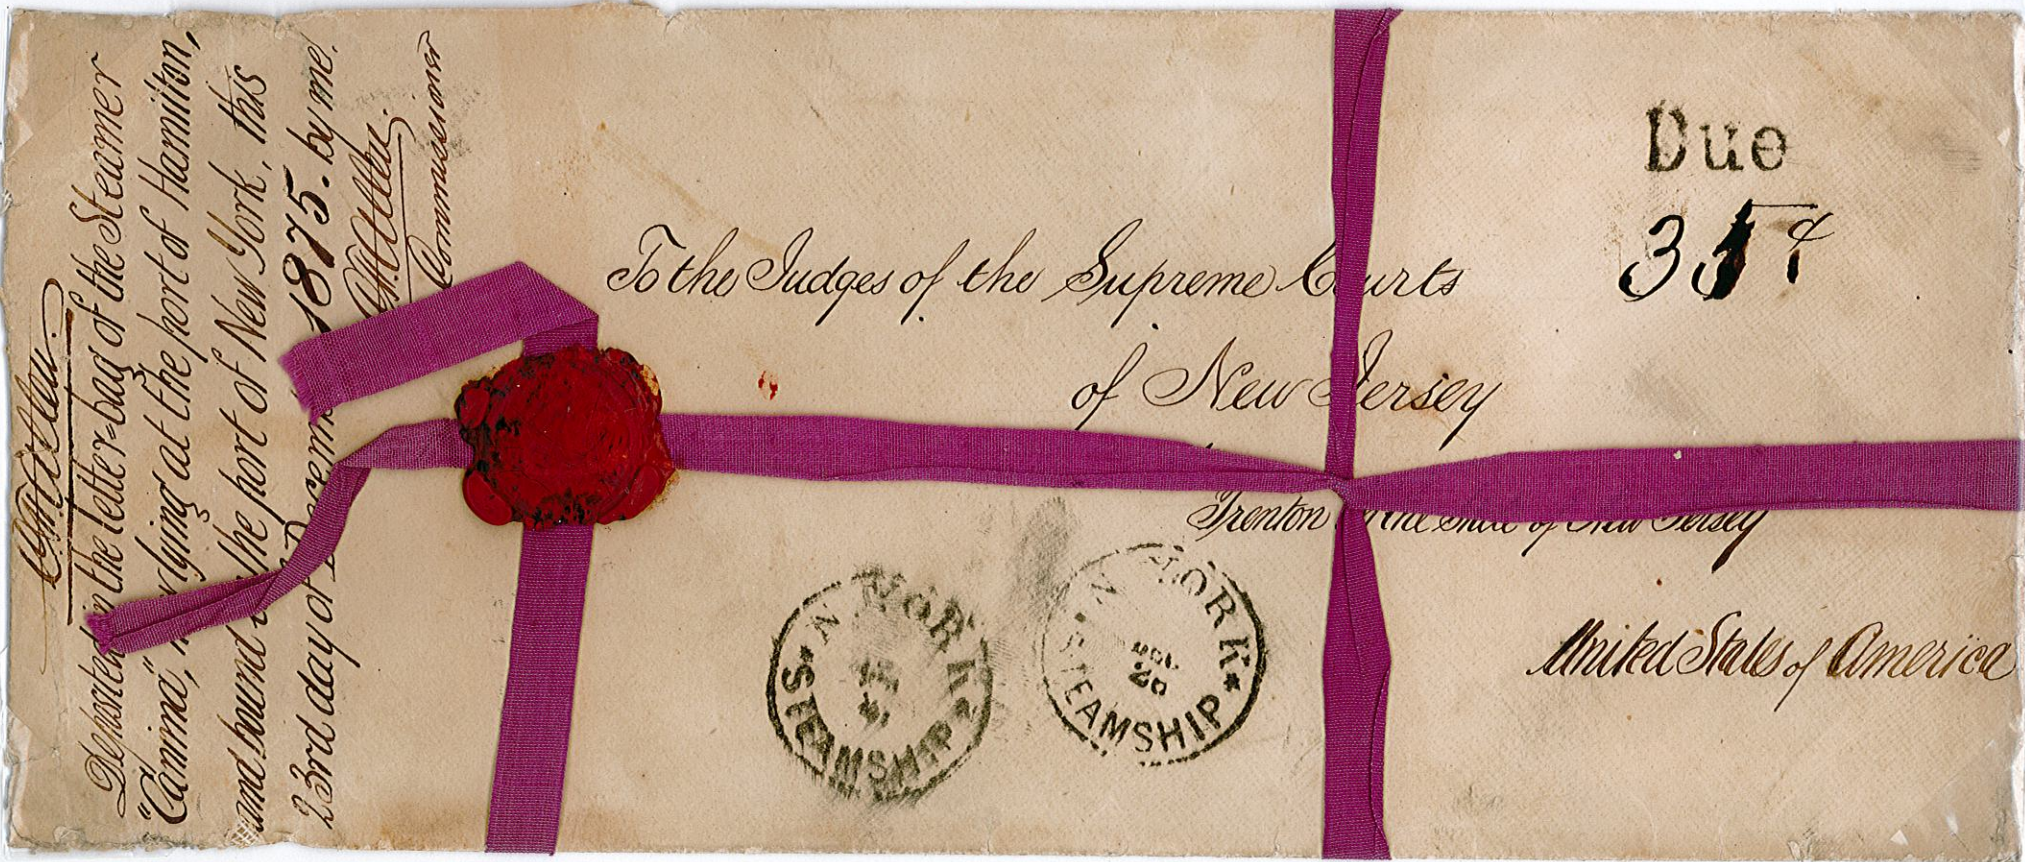 Deposited in the letter-bag of the Steamer
"Canima", lying at the port of Hamilton,
and bound the port of New York, this
23rd day of December 1875. by me.
Commissioner
To the Judges of the Supreme Courts
of New Jersey
Trenton in the State of New Jersey
United States of America
Due
N YORK
STEAMSHIP
N YORK
DEC
STEAMSHIP